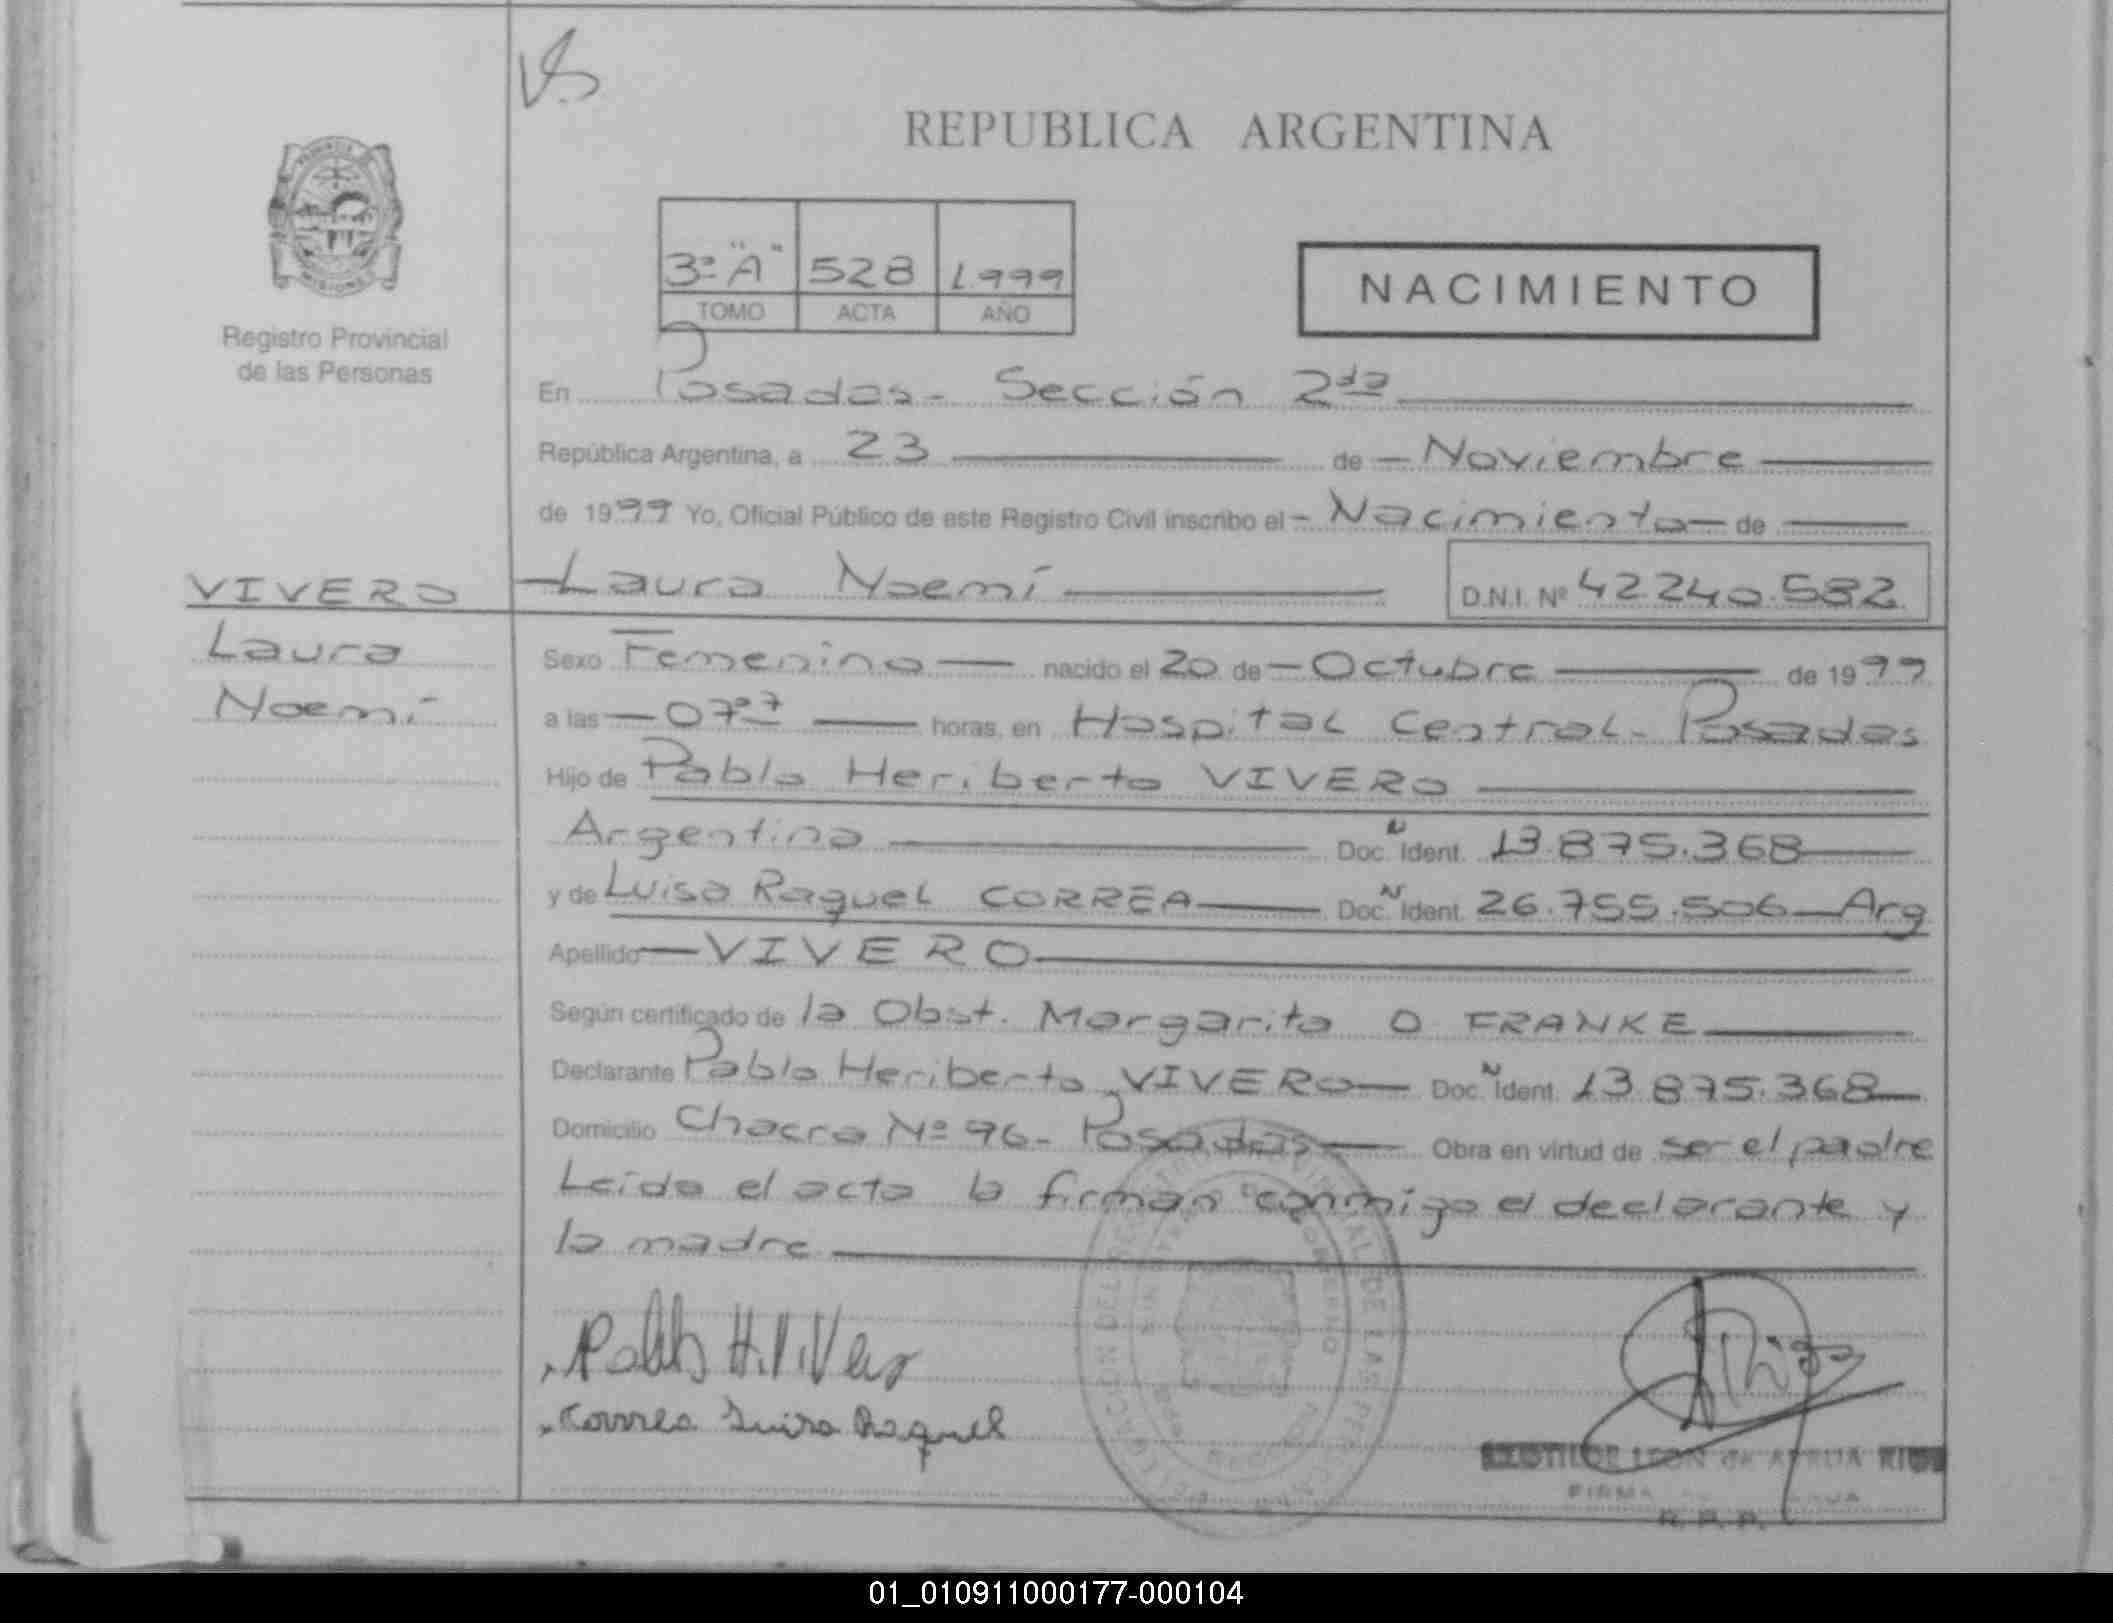 REPUBLICA ARGENTINA
3º "A" 528 1.999
TOMO ACTA AÑO
NACIMIENTO
Registro Provincial
de las Personas
En Posadas - Sección 2da
República Argentina, a 23 de - Noviembre
de 1999 Yo, Oficial Público de este Registro Civil inscribo el - Nacimiento - de
VIVERO
Laura
Noemí
Laura Noemí D.N.I. Nº 42240.582
Sexo Femenino nacido el 20 de - Octubre de 1999
a las - 07 horas, en Hospital Central - Posadas
Hijo de Pablo Heriberto VIVERO
Argentino Doc. N Ident. 13.875.368
y de Luisa Raquel CORREA Doc. N Ident. 26.755.506 - Arg
Apellido - VIVERO
Según certificado de la Obst. Margarita O FRANKE
Declarante Pablo Heriberto VIVERO - Doc. N Ident. 13.875.368
Domicilio Chacra Nº 96 - Posadas Obra en virtud de ser el padre
Leída el acta la firman conmigo el declarante y
la madre
Correa Luisa Raquel
R. P. P.
01_010911000177-000104